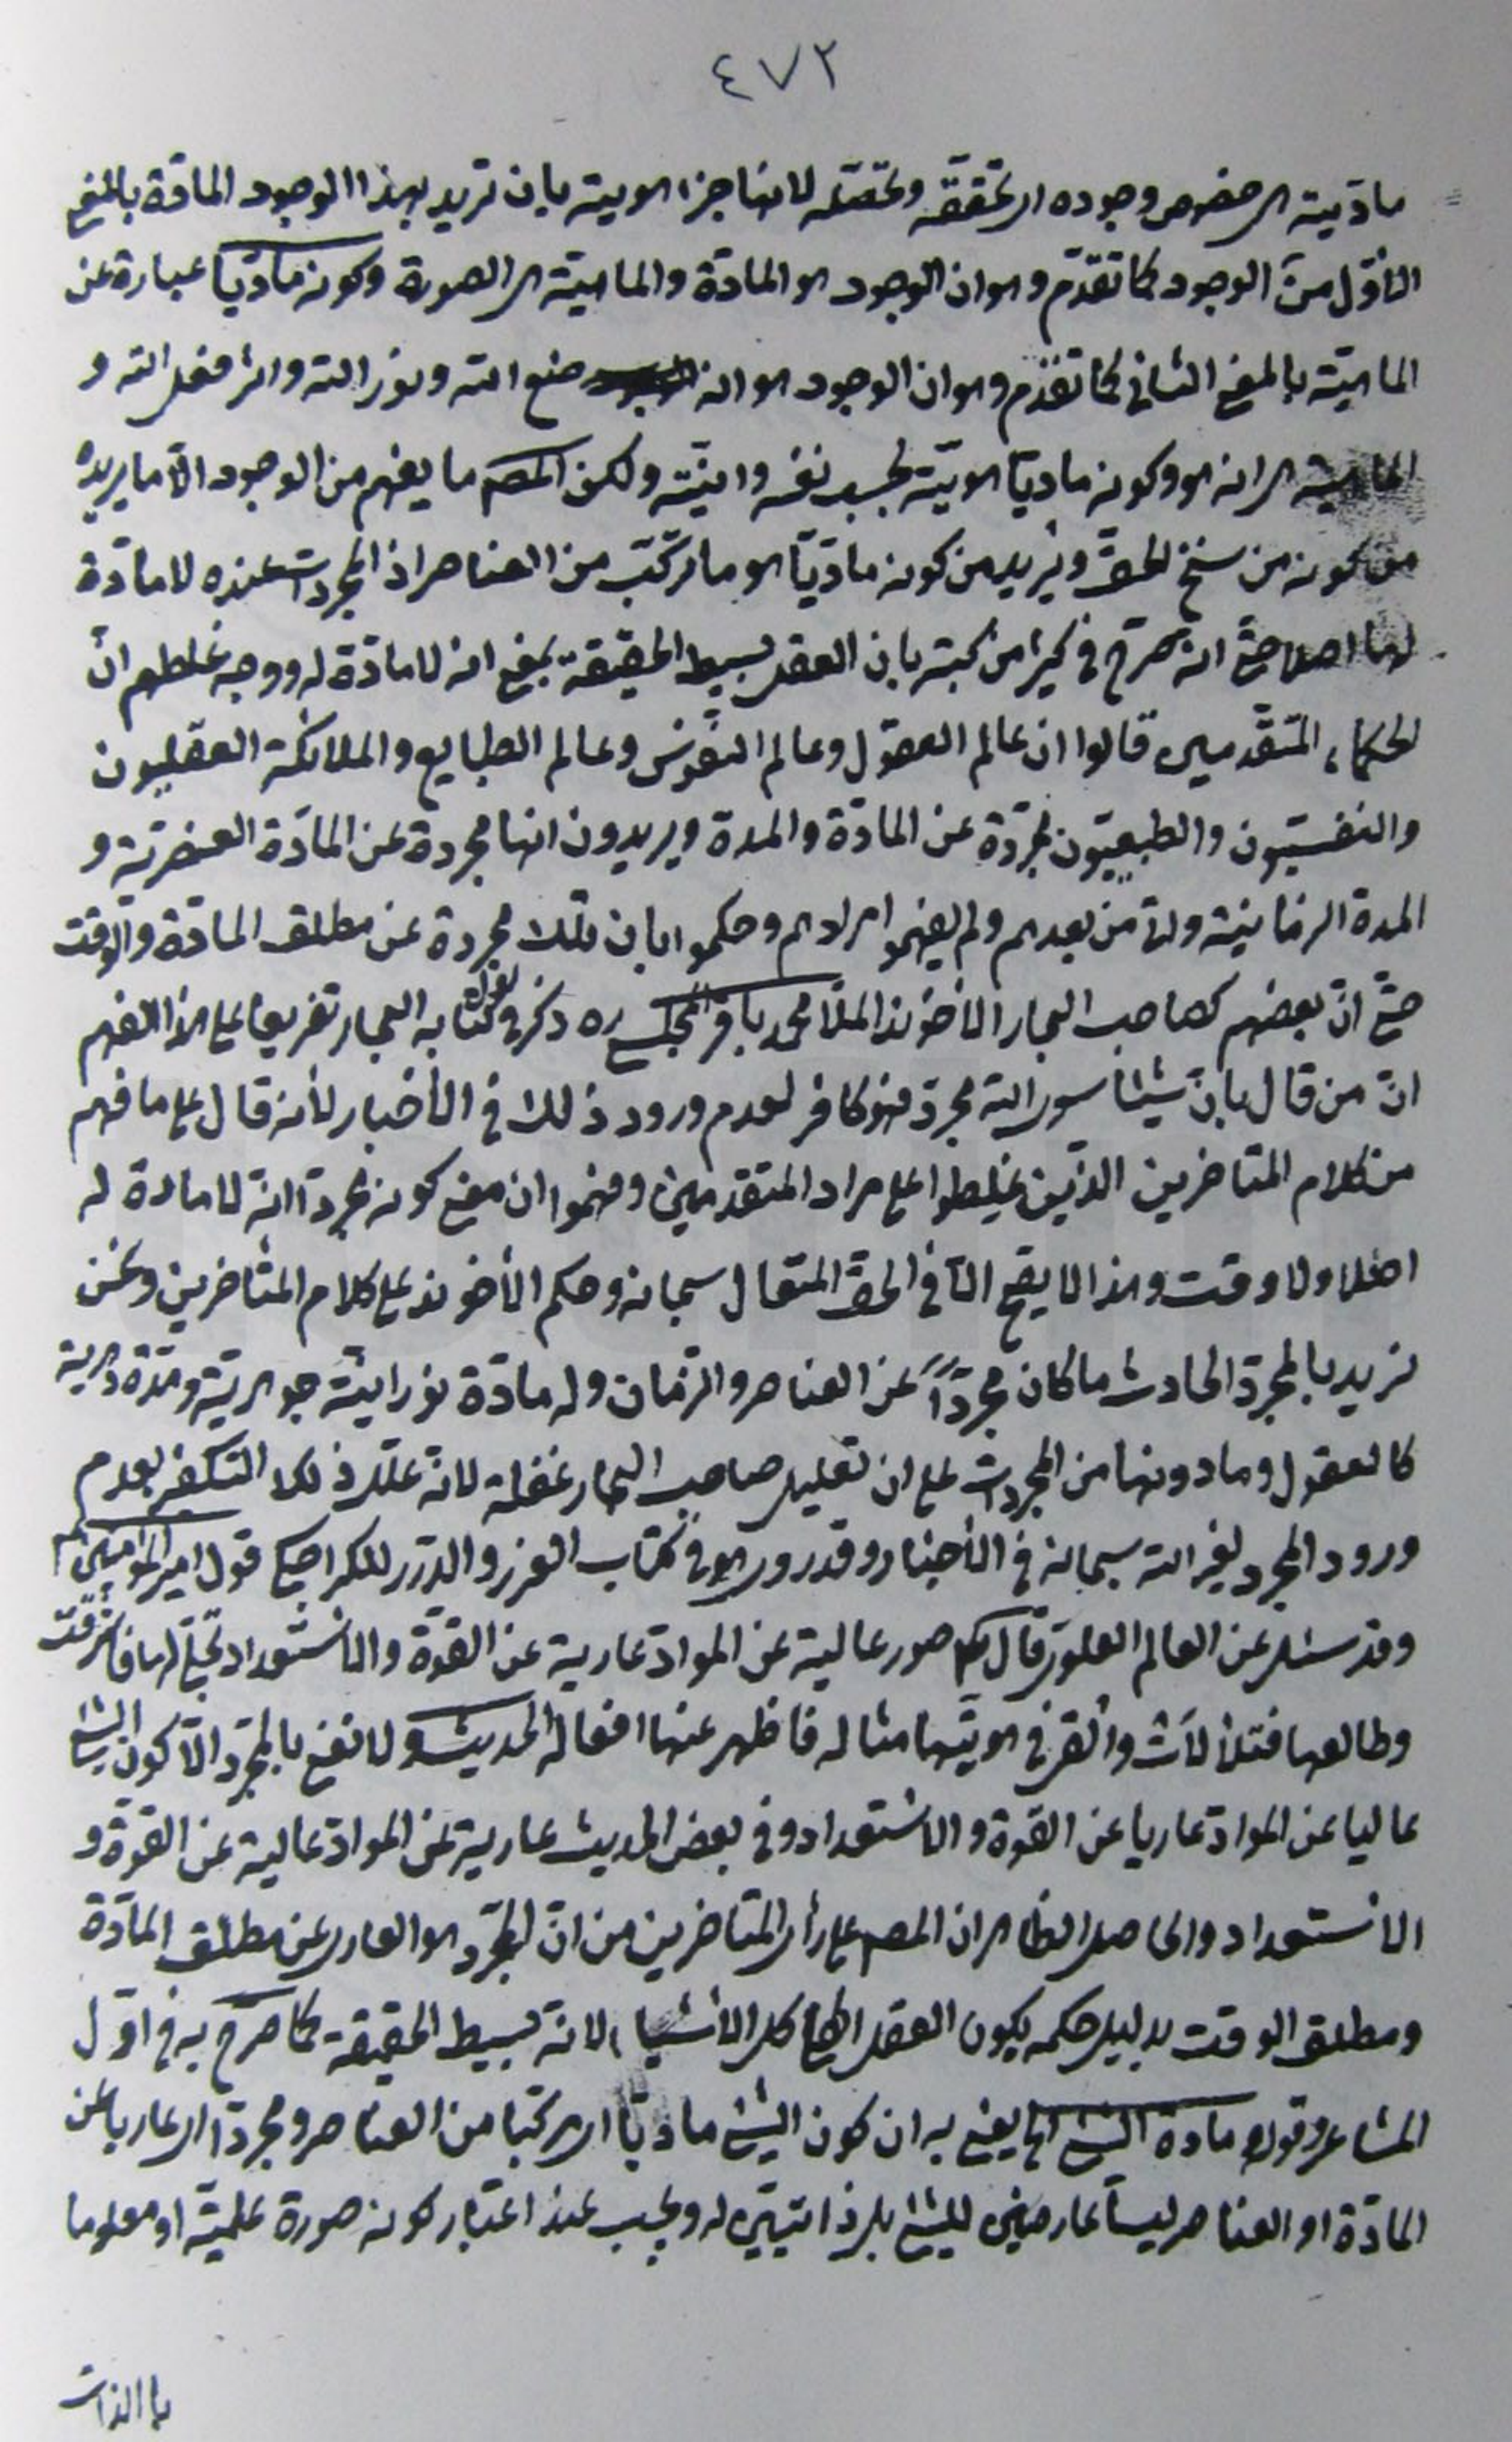 ٤٧٢
ماديته هي خصوص وجوده اي تحققه وتحصّله لانها جزء هويته بان تريد بهذا الوجود المادّة بالمعنى
الأوّل من الوجود كما تقدّم وهو ان الوجود هو المادّة والماهيّة هي الصورة وكونه ماديّا عبارة عن
الماهيّة بالمعنى الثاني كما تقدّم وهو ان الوجود هو انه صنع الله ونور الله واثر فعل الله و
الماهية هي انه هو وكونه ماديّا هويّته بحسب نفسه وانيّته ولكن المصـ ما يفهم من الوجود الّا ما يريده
من كونه من سنخ الحق ويريد من كونه ماديّا هو ما تركّب من العناصر اذ المجردات عنده لا مادّة
لها اصلا حتّى انه صرّح في كثير من كتبه بان العقل بسيط الحقيقة بمعنى انه لا مادّة له ووجه غلطهم انّ
الحكماء المتقدّمين قالوا ان عالم العقول وعالم النفوس وعالم الطبايع والملائكة العقليون
والنفسيّون والطبيعيّون مجرّدة عن المادّة والمدة ويريدون انها مجردة عن المادّة العنصريّة و
المدة الزمانيّة واتى من بعدهم ولم يفهموا مرادهم وحكموا بان تلك مجردة عن مطلق المادّة والوقت
حتّى انّ بعضهم كصاحب البحار الأخوند الملّا محمد باقر المجلسي ره ذكر في كتابه البحار تفريعا على هذا الفهم
انّ من قال بانّ شيئا سوى الله مجرد فهو كافر لعدم ورود ذلك في الأخبار لأنه قال على ما فهم
من كلام المتاخرين الذين غلطوا على مراد المتقدمين وفهموا ان معنى كونه مجردا انّه لا مادة له
اصلا ولا وقت وهذا لا يصح الّا في الحق المتعال سبحانه وحكم الأخوند على كلام المتاخرين ونحن
نريد بالمجرد الحادث ما كان مجرّدًا عن العناصر والزمان وله مادّة نورانيّة جوهريّة ومدّة دهرية
كالعقول وما دونها من المجردات على ان تعليل صاحب البحار غفلة لانّه علّل ذلك التكفير بعدم
ورود المجرد لغير الله سبحانه في الأخبار وقد روى هو في كتاب الغرر والدرر للكراجكي قول امير المؤمنين ع
وقد سئل عن العالم العلوي قال ع صور عالية عن المواد عارية عن القوّة والاستعداد تجلّى لها فاشرقت
وطالعها فتلألأت والقى في هويّتها مثاله فاظهر عنها افعاله الحديث ولا نعني بالمجرّد الّا كون الشئ
عاليا عن المواد عاريا عن القوة والاستعداد وفي بعض الحديث عارية عن المواد عالية عن القوة و
الاستعداد والحاصل الظاهر ان المصـ على رأي المتاخرين من انّ المجرّد هو العاري عن مطلق المادّة
ومطلق الوقت بدليل حكمه بكون العقل كل الأشياء لانّه بسيط الحقيقة كما صرح به في اوّل
المشاعر وقوله مادة الشئ الخ يعني به ان كون الشئ ماديّا اي مركّبا من العناصر ومجردا اي عاريا عن
المادّة او العناصر ليسا عارضين للشئ بل ذاتيّين له ويجب عند اعتبار كونه صورة علميّة او معلوما
بالذات